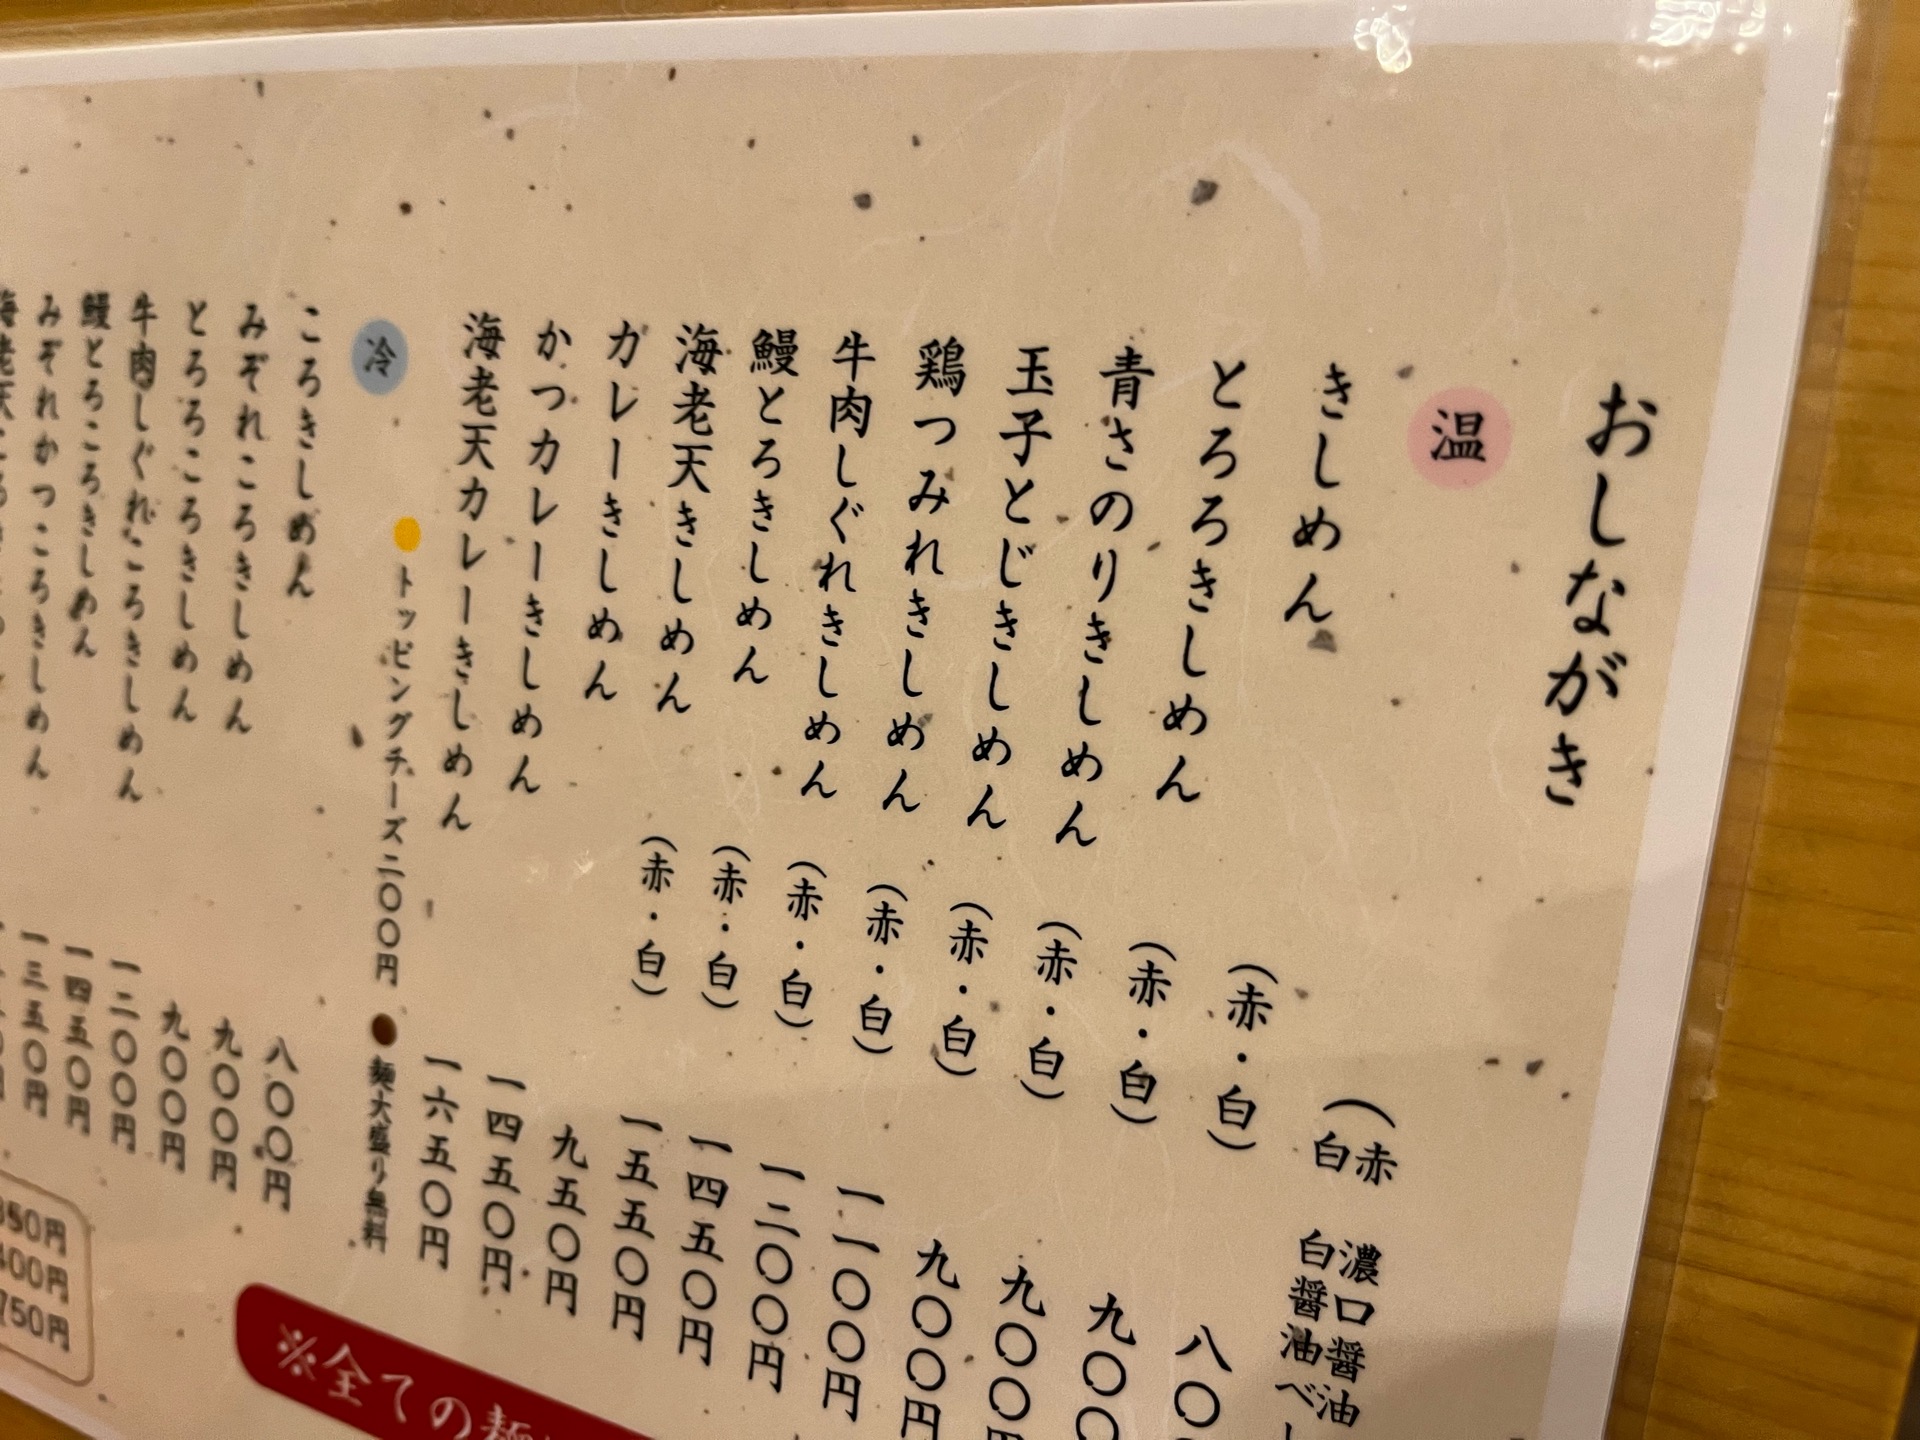 おしながき
温
(赤 濃口醤油
白 白醤油ベー
きしめん (赤・白) 八〇
とろろきしめん (赤・白) 九〇〇
青さのりきしめん (赤・白) 九〇〇円
玉子とじきしめん (赤・白) 九〇〇円
鶏つみれきしめん (赤・白) 一一〇〇円
牛肉しぐれきしめん (赤・白) 一二〇〇円
鰻とろきしめん (赤・白) 一四五〇円
海老天きしめん (赤・白) 一五五〇円
カレーきしめん 九五〇円
かつカレーきしめん 一四五〇円
海老天カレーきしめん 一六五〇円
トッピングチーズ二〇〇円 麺大盛り無料
冷
ころきしめん 八〇〇円
みぞれころきしめん 九〇〇円
とろろころきしめん 九〇〇円
牛肉しぐれころきしめん 一二〇〇円
鰻とろころきしめん 一四五〇円
みぞれかつころきしめん 一三五〇円
海老天ころき
350円
400円
750円
※全ての麺